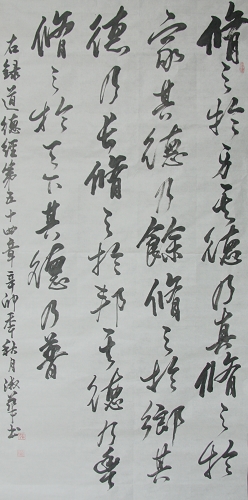 脩之於身其德乃真脩之於
家其德乃餘脩之於鄉其
德乃長脩之於邦其德乃豐
脩之於天下其德乃普
右録道德經第五十四章辛卯年秋月淑芬书